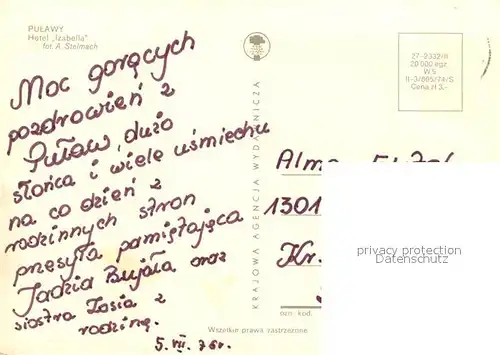 PUŁAWY
Hotel „Izabella"
fot. A. Stelmach
Moc gorących
pozdrowień z
Puław, dużo
słońca i wiele uśmiechu
na co dzień z
rodzinnych stron
przesyła pamiętająca
Jadzia Bujała oraz
siostra Zosia z
rodziną.
5. VII. 76r.
KRAJOWA AGENCJA WYDAWNICZA
27-2332/II
20 000 egz.
W S
II-3/805/74/S
Cena zł 3,-
1301
Kr.
ozn. kod.
privacy protection
DARKENSAMMLER
Wszelkie prawa zastrzeżone